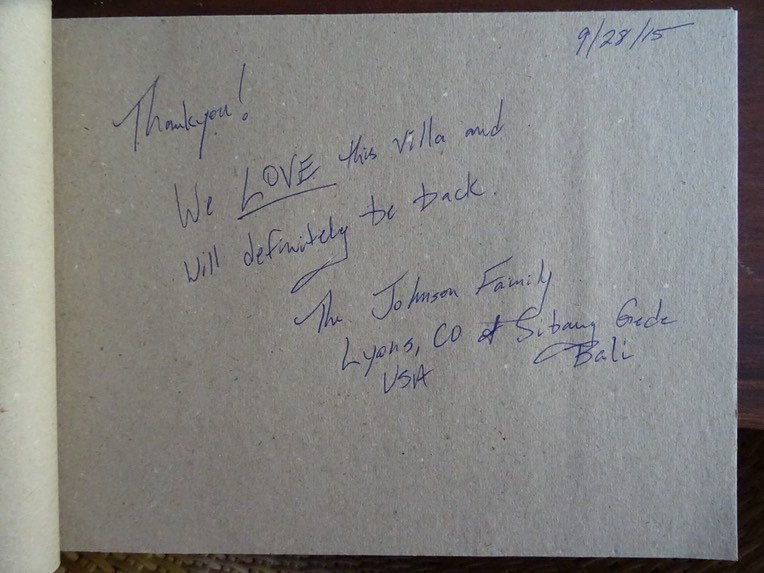 9/28/15
Thankyou!
We LOVE this villa and
will definitely be back.
The Johnson Family
Lyons, CO & Sibang Gede
USA Bali